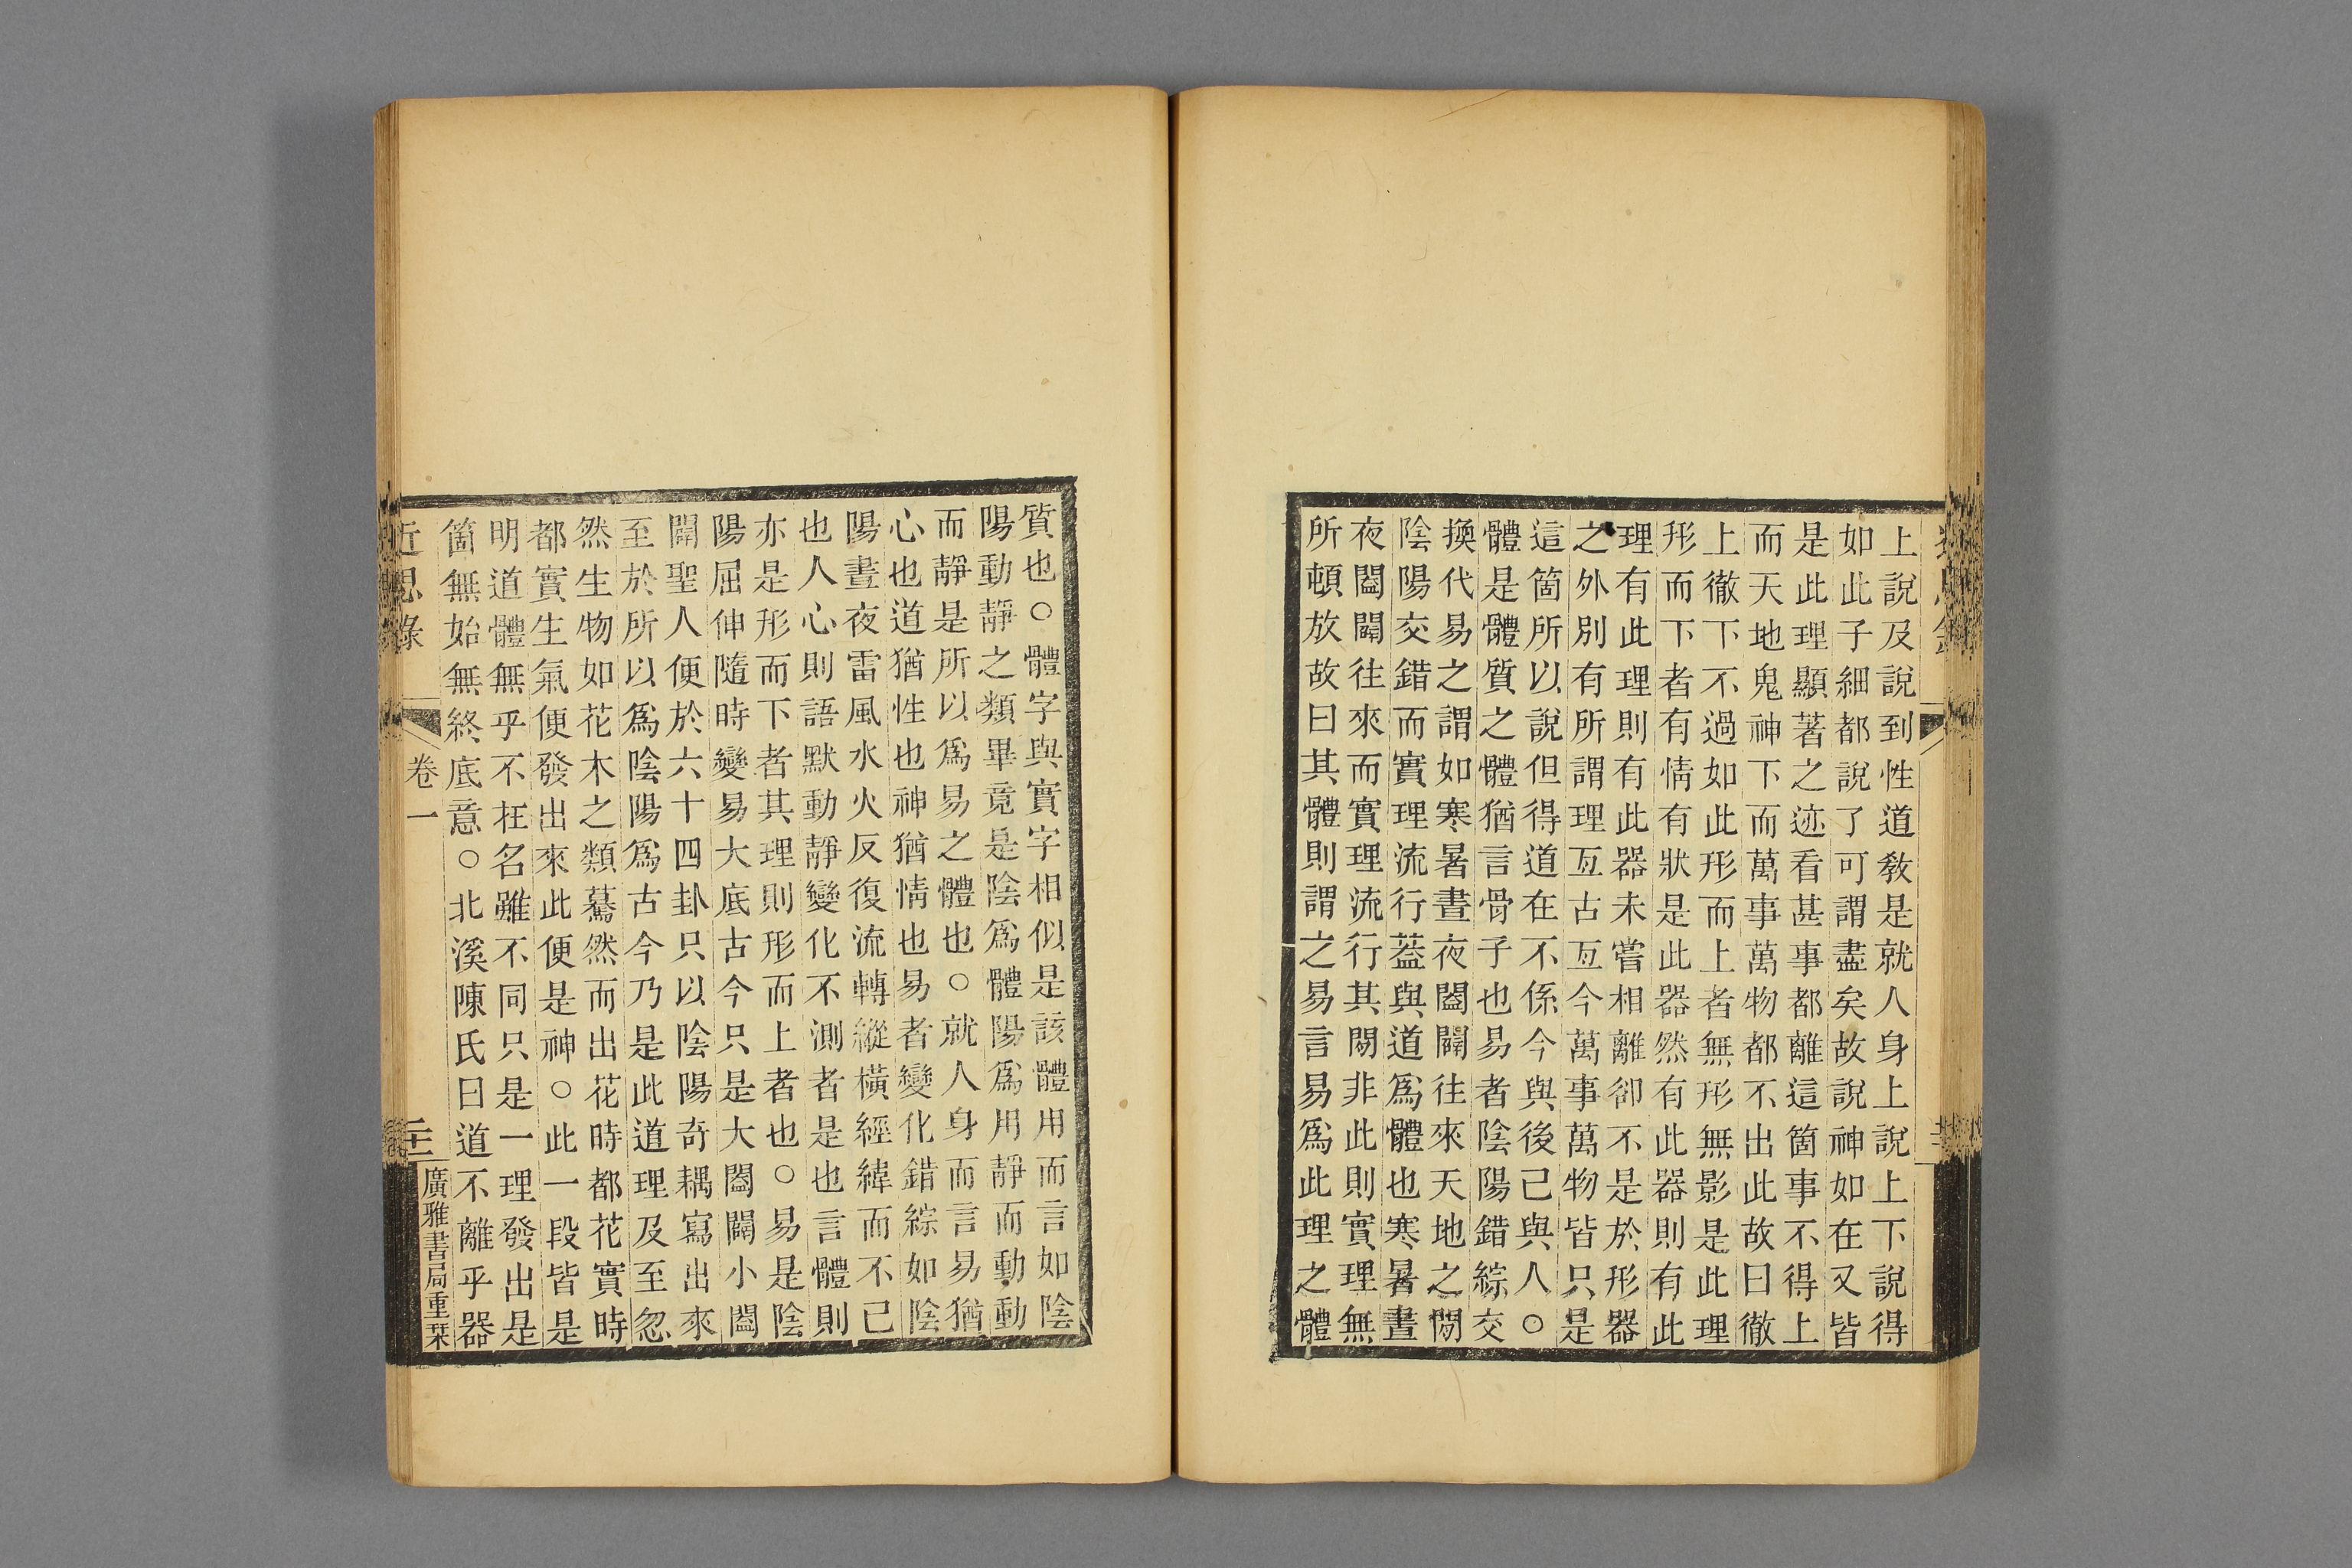 上說及說到性道教是就人身上說上下說得
如此子細都說了可謂盡矣故說神如在又皆
是此理顯著之迹看甚事都離這箇事不得上
而天地鬼神下而萬事萬物都不出此故曰徹
上徹下不過如此形而上者無形無影是此理
形而下者有情有狀是此器然有此器則有此
理有此理則有此器未嘗相離卻不是於形器
之外別有所謂理亙古亙今萬事萬物皆只是
這箇所以說但得道在不係今與後己與人○
體是體質之體猶言骨子也易者陰陽錯綜交
換代易之謂如寒暑晝夜闔闢往來天地之閒
陰陽交錯而實理流行葢與道爲體也寒暑晝
夜闔闢往來而實理流行其閒非此則實理無
所頓放故曰其體則謂之易言易爲此理之體
質也○體字與實字相似是該體用而言如陰
陽動靜之類畢竟是陰爲體陽爲用靜而動動
而靜是所以爲易之體也○就人身而言易猶
心也道猶性也神猶情也易者變化錯綜如陰
陽晝夜雷風水火反復流轉縱橫經緯而不已
也人心則語默動靜變化不測者是也言體則
亦是形而下者其理則形而上者也○易是陰
陽屈伸隨時變易大底古今只是大闔闢小闔
闢聖人便於六十四卦只以陰陽奇耦寫出來
至於所以爲陰陽爲古今乃是此道理及至忽
然生物如花木之類驀然而出花時都花實時
都實生氣便發出來此便是神○此一段皆是
明道體無乎不在名雖不同只是一理發出是
箇無始無終底意○北溪陳氏曰道不離乎器
近思錄 卷一
廣雅書局重栞